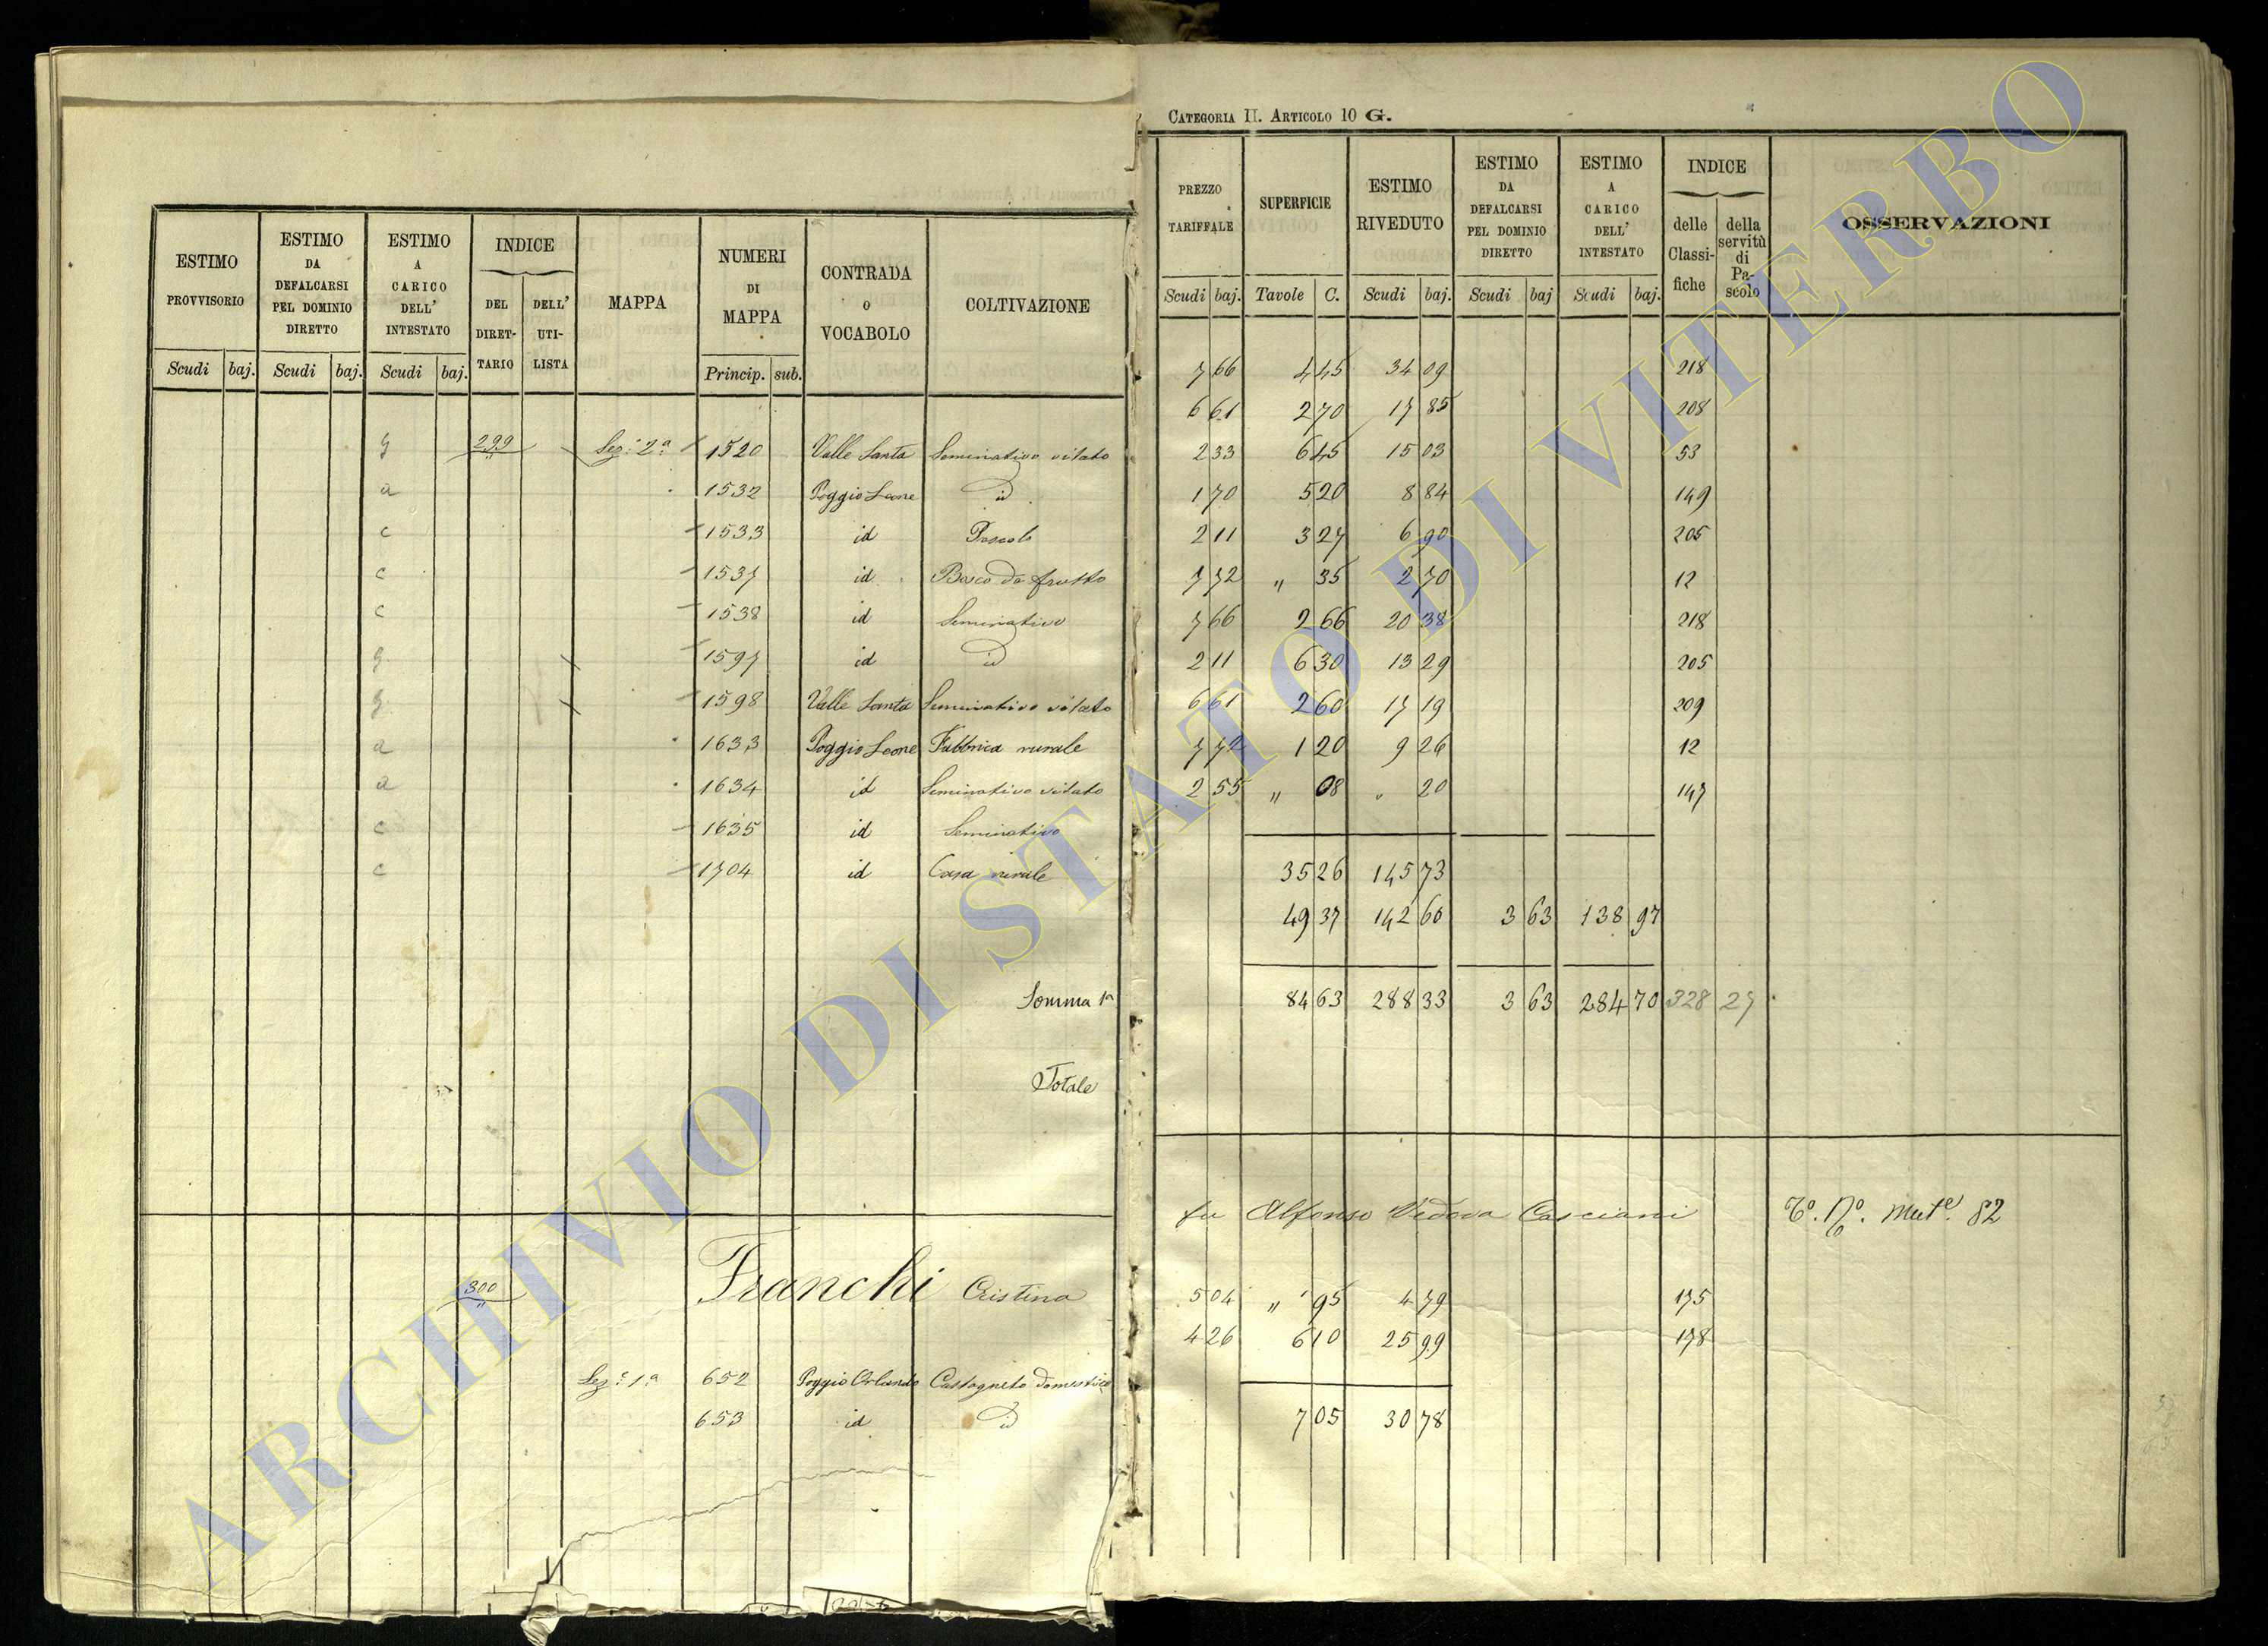 CATEGORIA II. ARTICOLO 10 G.
ESTIMO PROVVISORIO
ESTIMO DA DEFALCARSI PEL DOMINIO DIRETTO
ESTIMO A CARICO DELL' INTESTATO
INDICE
DEL DIRETTARIO
DELL' UTILISTA
MAPPA
NUMERI DI MAPPA
CONTRADA o VOCABOLO
COLTIVAZIONE
Scudi baj. Scudi baj. Scudi baj. Princip. sub.
299 Sez. 2a 1520 Valle Santa Seminativo vitato
a 1532 Poggio Leone id
c 1533 id Pascolo
c 1537 id Bosco da frutto
c 1538 id Seminativo
1597 id id
1598 Valle Santa Seminativo vitato
a 1633 Poggio Leone Fabbrica rurale
a 1634 id Seminativo vitato
c 1635 id Seminativo
c 1704 id Casa rurale
Somma
Totale
300 Franchi Cristina
Sez. 1a 652 Poggio Orlando Castagneto domestico
653 id id
PREZZO TARIFFALE
SUPERFICIE
ESTIMO RIVEDUTO
ESTIMO DA DEFALCARSI PEL DOMINIO DIRETTO
ESTIMO A CARICO DELL' INTESTATO
INDICE
delle Classifiche
della servitù di Pascolo
OSSERVAZIONI
Scudi baj. Tavole C. Scudi baj. Scudi baj Scudi baj.
7 66 4 45 34 09 218
6 61 2 70 17 85 208
2 33 6 45 15 03 53
1 70 5 20 8 84 149
2 11 3 27 6 90 205
7 72 " 35 2 70 12
7 66 2 66 20 38 218
2 11 6 30 13 29 205
6 61 2 60 17 19 209
7 72 1 20 9 26 12
2 55 " 08 " 20 147
35 26 145 73
49 37 142 60 3 63 138 97
84 63 288 33 3 63 284 70 328 27
fu Alfonso Vedova Casciani
82
5 04 " 95 4 79 175
4 26 6 10 25 99 178
7 05 30 78
ARCHIVIO DI STATO DI VITERBO